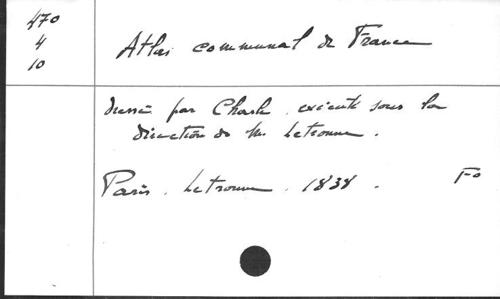 470
4
10
Atlas communal de France
dressé par Charle, exécuté sous la
direction de M. Letronne.
Paris. Letronne. 1838. Fo